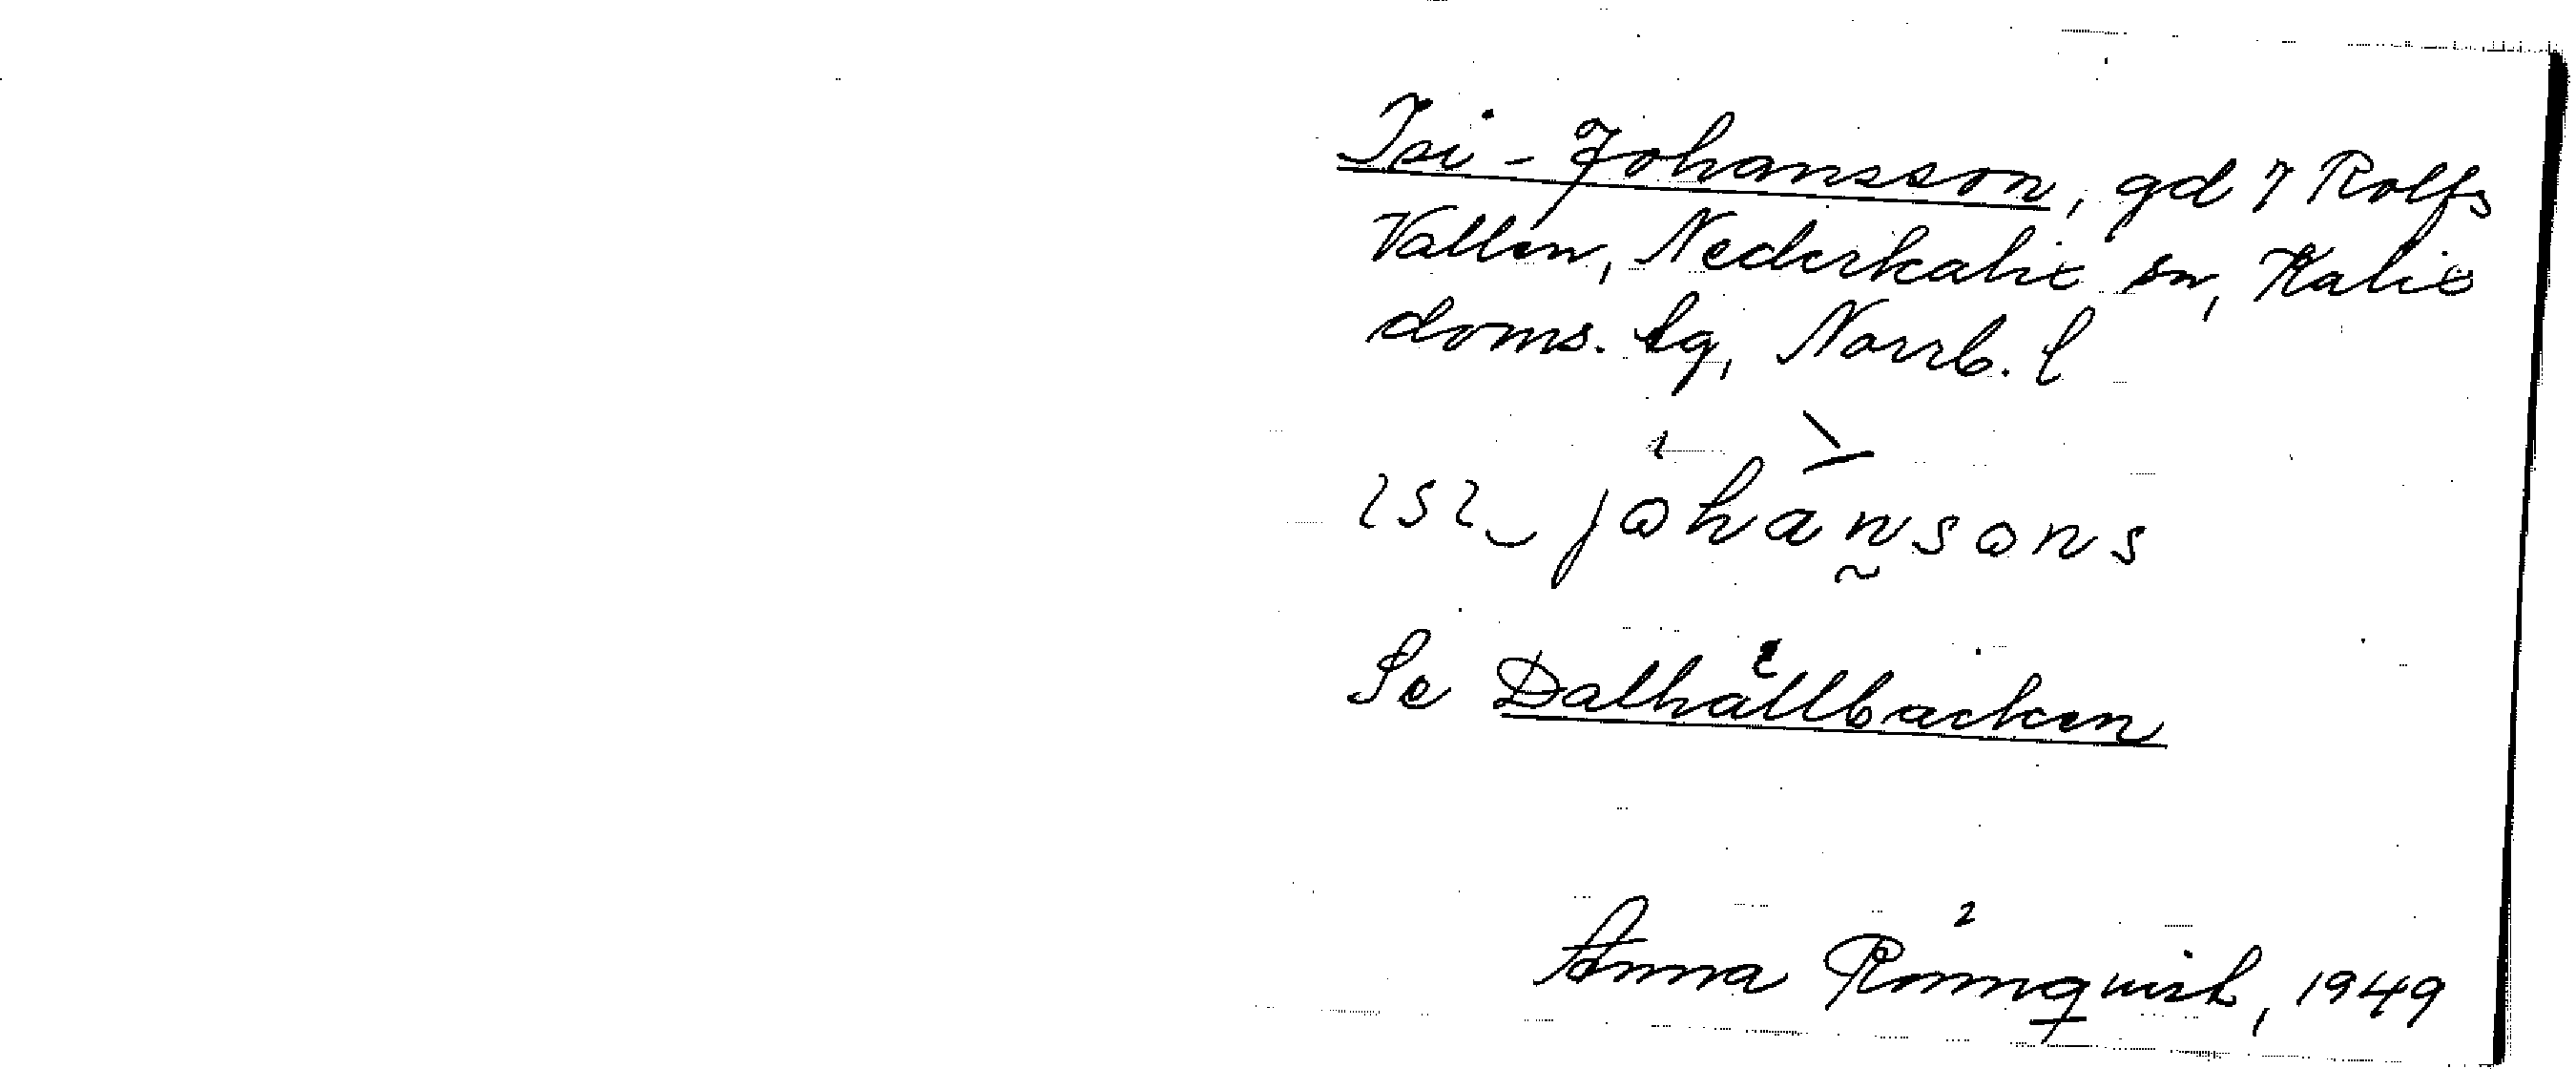 Isi-Johansson, gd 7 Rolfs
Vallen, Nederkalix sn, Kalix
doms. lg, Norrb. l
ɩsɩ‿johansons
Se Dalhällbacken
Anna Rönnquist, 1949